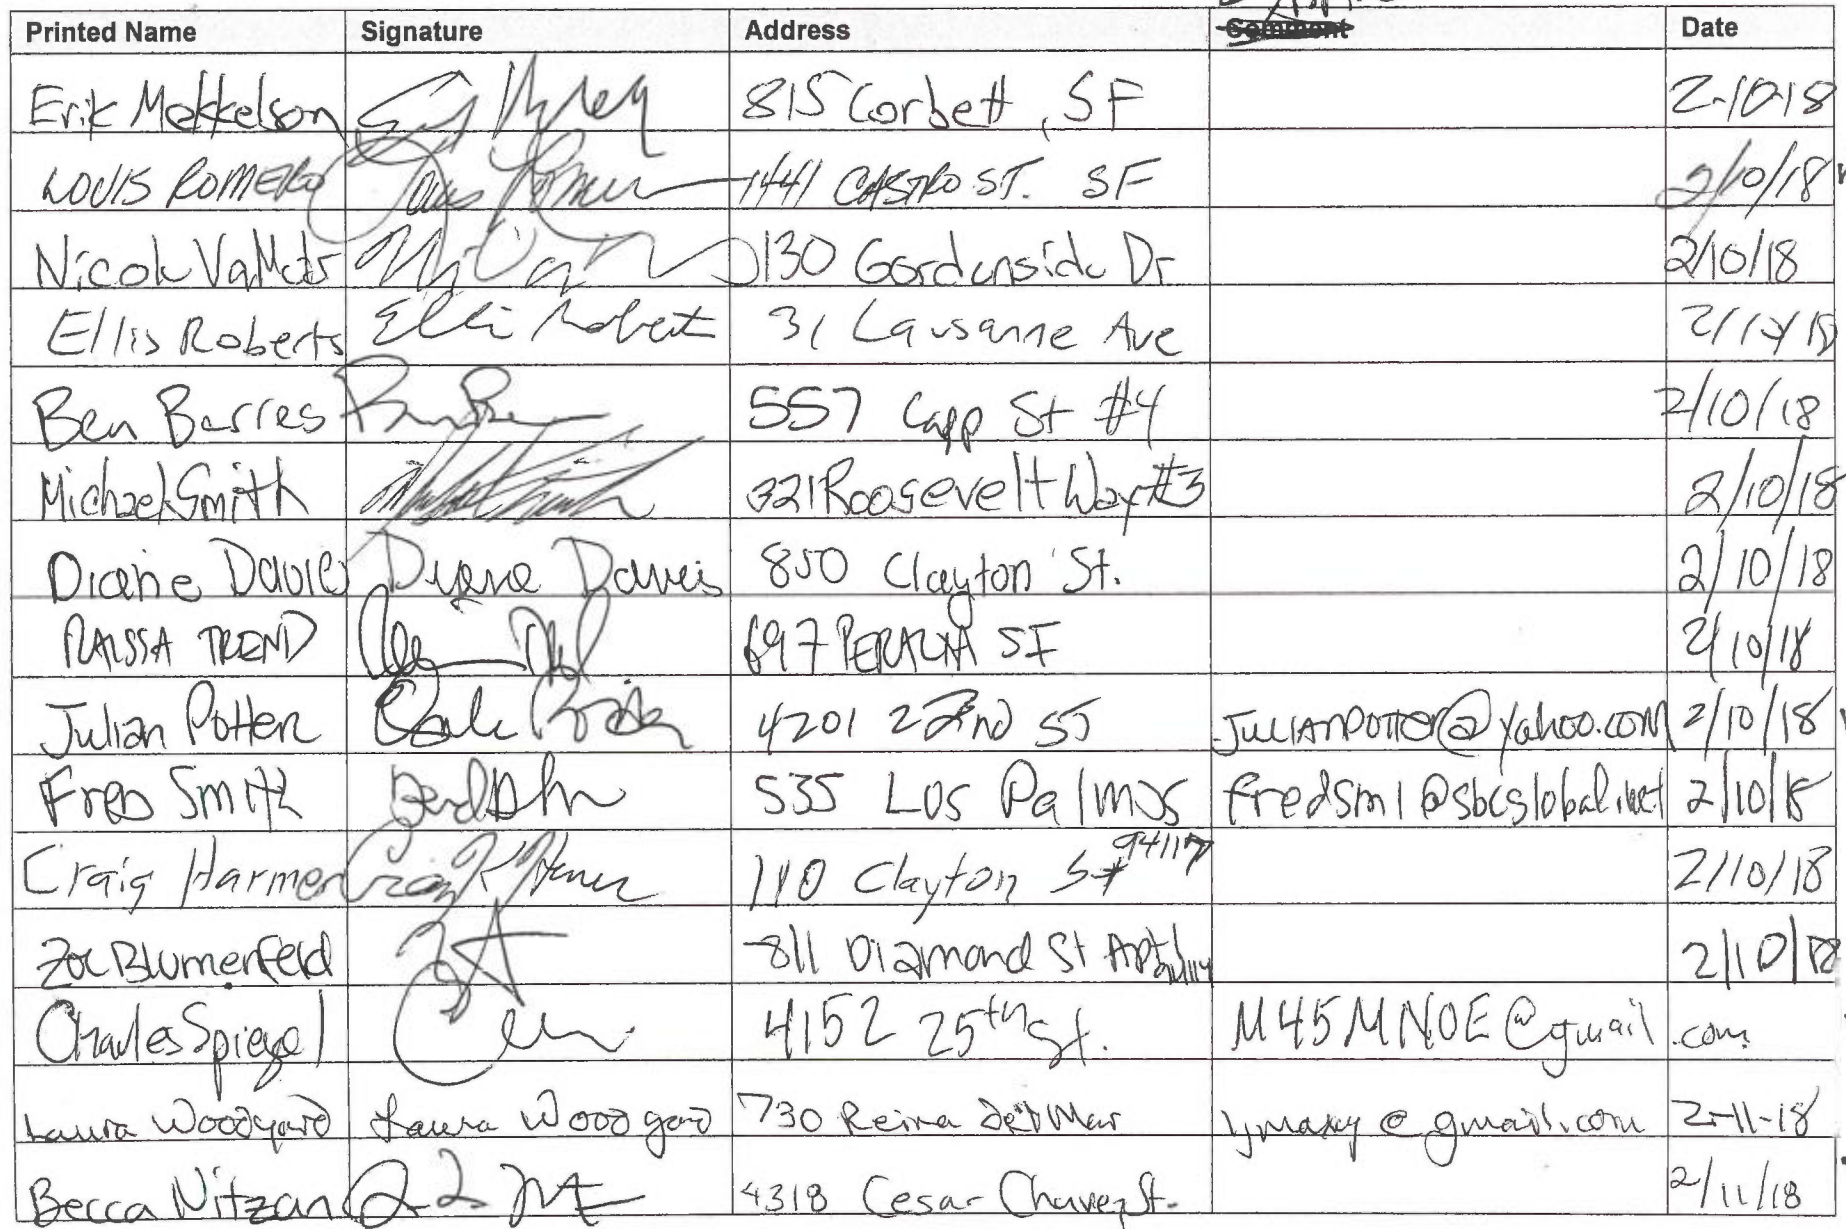 Printed Name Signature Address Comment Date
Erik Mekkelson 815 Corbett, SF 2-10-18
LOUIS ROMERO Louis Romero 1441 CASTRO ST. SF 2/10/18
Nicole 130 Gardenside Dr 2/10/18
Ellis Roberts Ellis Roberts 31 Lausanne Ave 2/10/18
Ben Barres 557 Capp St #4 2/10/18
Michael Smith 321 Roosevelt Way #3 2/10/18
Diane Davies Diane Davis 850 Clayton St. 2/10/18
RAISSA TREND 697 PERALTA SF 2/10/18
Julian Potter 4201 22nd ST JULIANPOTTER@yahoo.com 2/10/18
Fred Smith 535 Los Palmos fredsm1@sbcglobal.net 2/10/18
Craig Harmer 110 Clayton St 94117 2/10/18
Zoe Blumenfeld 811 Diamond St Apt 2/10/18
Charles Spiegel 4152 25th St. M45MNOE@gmail.com
Laura Woodyard Laura Woodyard 730 Reina Del Mar 2-11-18
Becca Nitzan 4318 Cesar Chavez St. 2/11/18